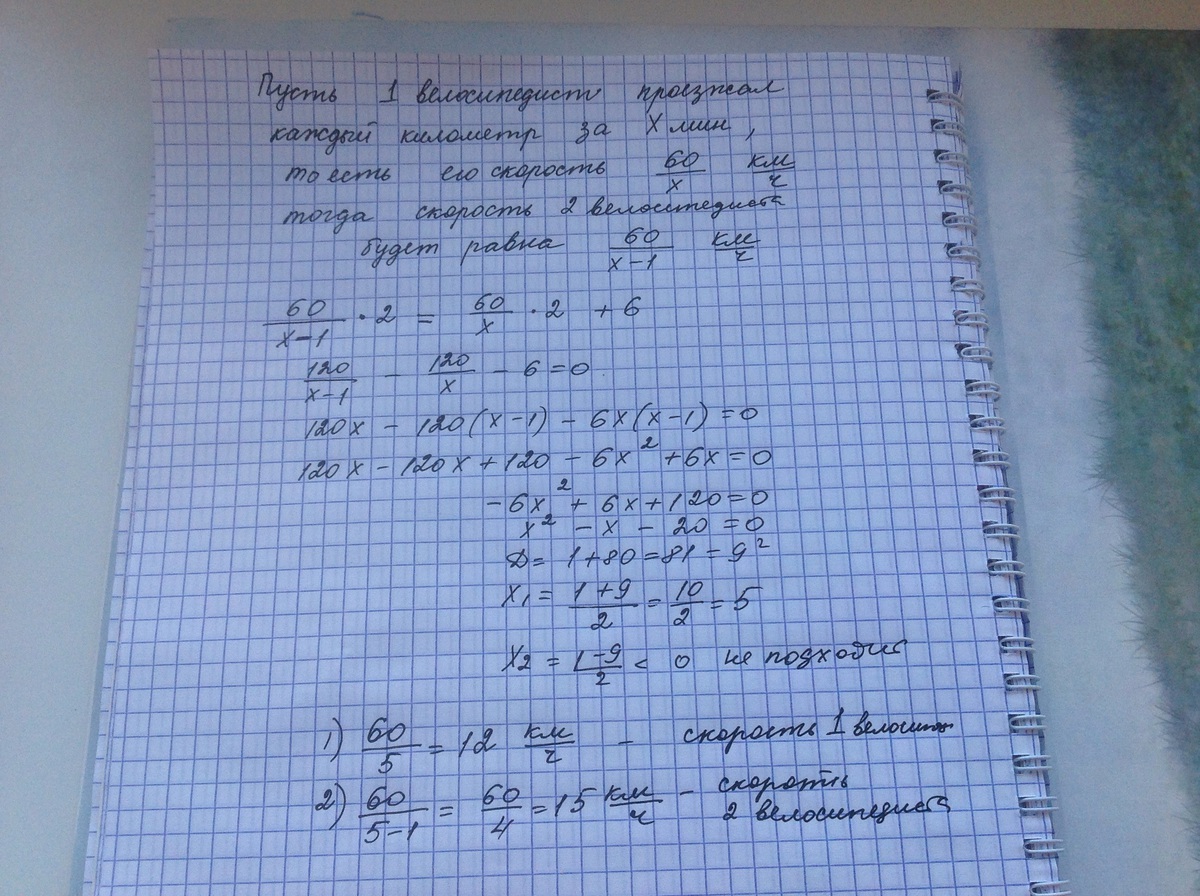 Пусть 1 велосипедист проезжал
каждый километр за X мин,
то есть его скорость 60/x км/ч
тогда скорость 2 велосипедиста
будет равна 60/x-1 км/ч
60/x-1 · 2 = 60/x · 2 + 6
120/x-1 - 120/x - 6 = 0
120x - 120(x-1) - 6x(x-1) = 0
120x - 120x + 120 - 6x² + 6x = 0
-6x² + 6x + 120 = 0
x² - x - 20 = 0
D = 1+80 = 81 = 9²
X₁ = 1+9/2 = 10/2 = 5
X₂ = 1-9/2 < 0 не подходит
1) 60/5 = 12 км/ч - скорость 1 велосип
2) 60/5-1 = 60/4 = 15 км/ч - скорость
2 велосипедиста